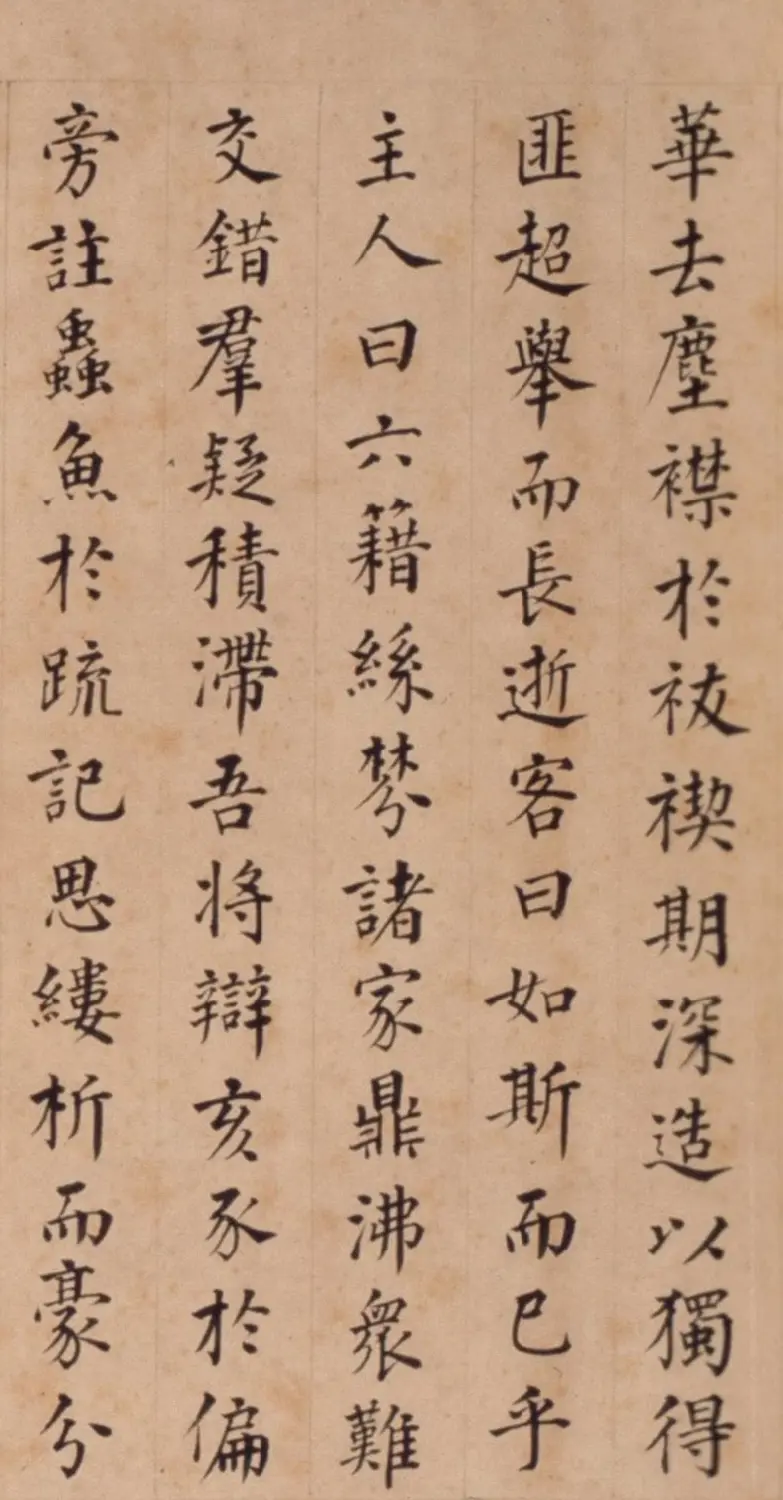 華去塵襟於祓禊期深造以獨得
匪超舉而長逝客曰如斯而已乎
主人曰六籍絲棼諸家鼎沸眾難
交錯羣疑積滯吾將辯亥豕於偏
旁註蟲魚於疏記思縷析而豪分